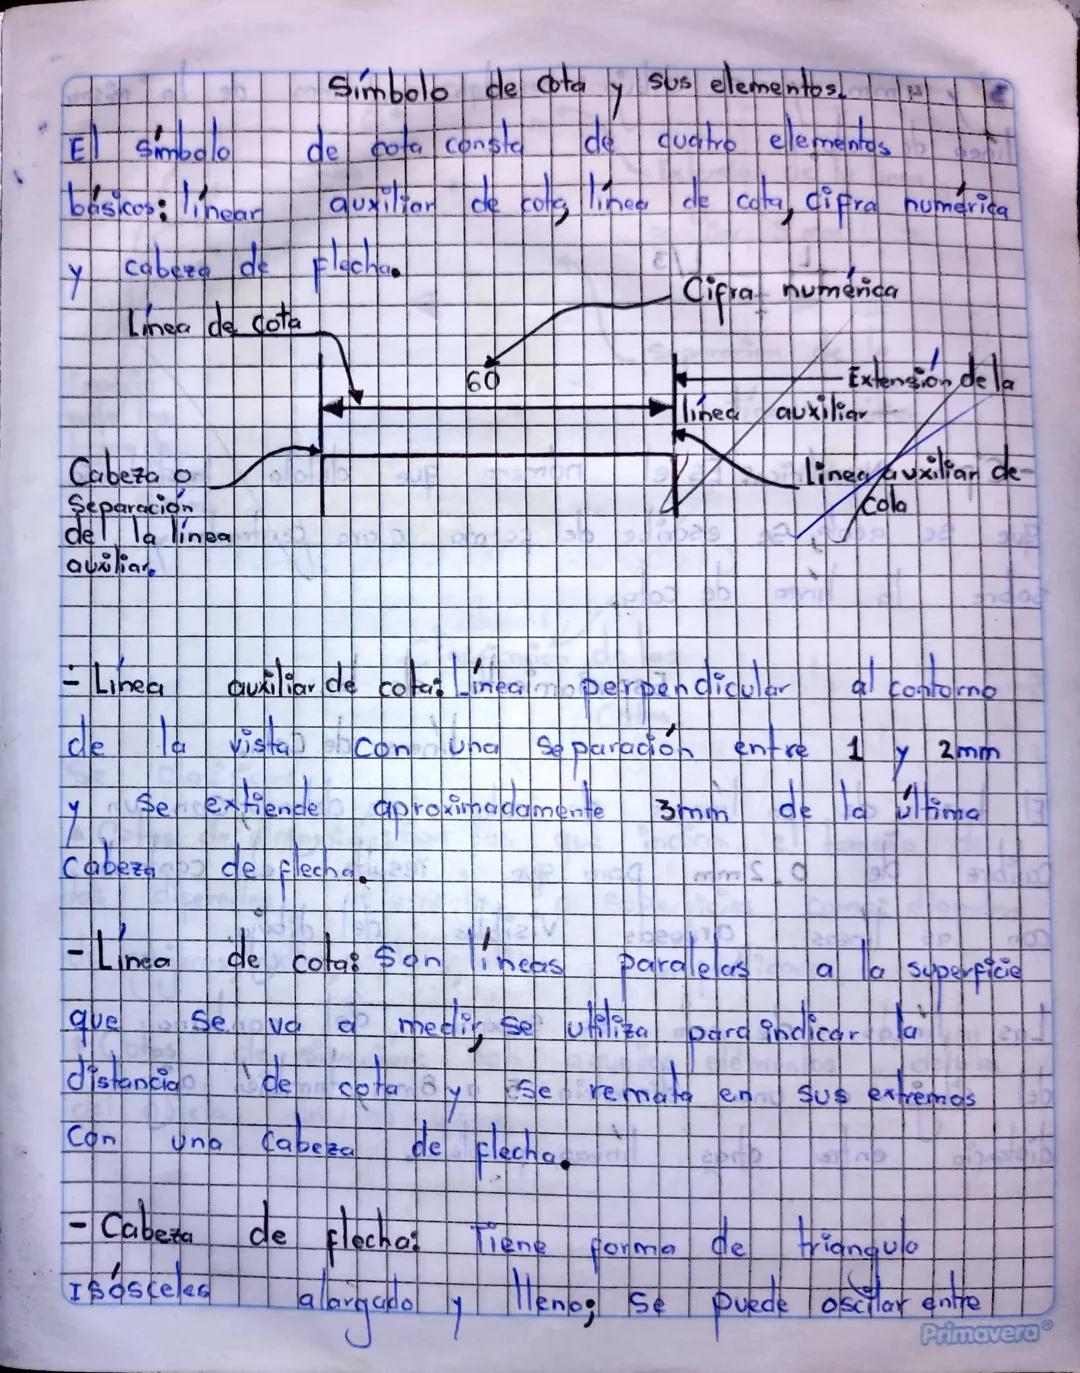 Símbolo de cota y sus elementos.
El símbolo de cota consta de cuatro elementos
básicos: línear auxiliar de cota, línea de cota, cifra numérica
y cabeza de flecha.
Cifra numérica
Línea de cota
60
Extensión de la
línea auxiliar
Cabeza o
Separación
de la línea
auxiliar.
línea auxiliar de
cota
- Línea auxiliar de cota: Línea perpendicular al contorno
de la vista con una separación entre 1 y 2mm
y se extiende aproximadamente 3mm de la última
cabeza de flecha.
- Línea de cota: Son líneas paralelas a la superficie
que se va a medir, se utiliza para indicar la
distancia de cota y se remata en sus extremos
con una cabeza de flecha.
- Cabeza de flecha: Tiene forma de triangulo
Isósceles alargado y lleno; se puede oscilar entre
Primavera®